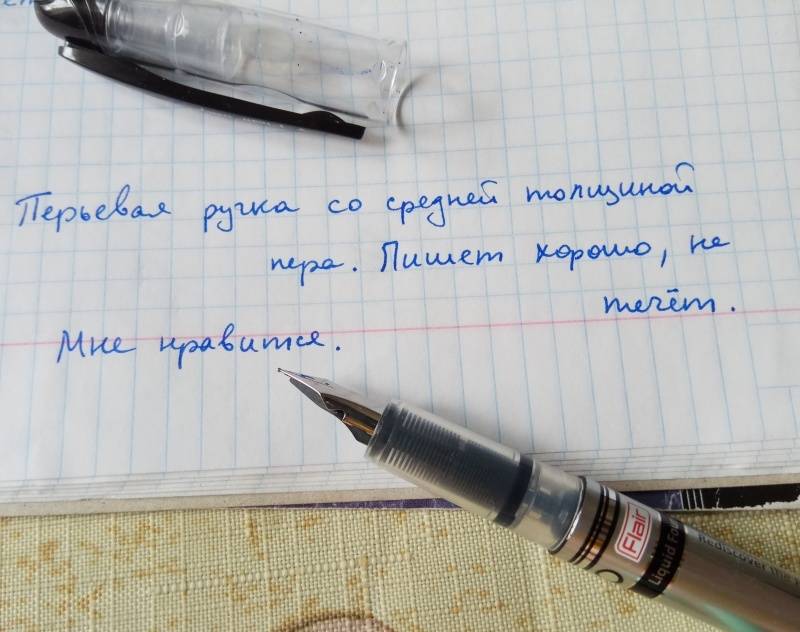 Перьевая ручка со средней толщиной
пера. Пишет хорошо, не
течёт.
Мне нравится.
Flair
Liquid Fou
Rediscover the